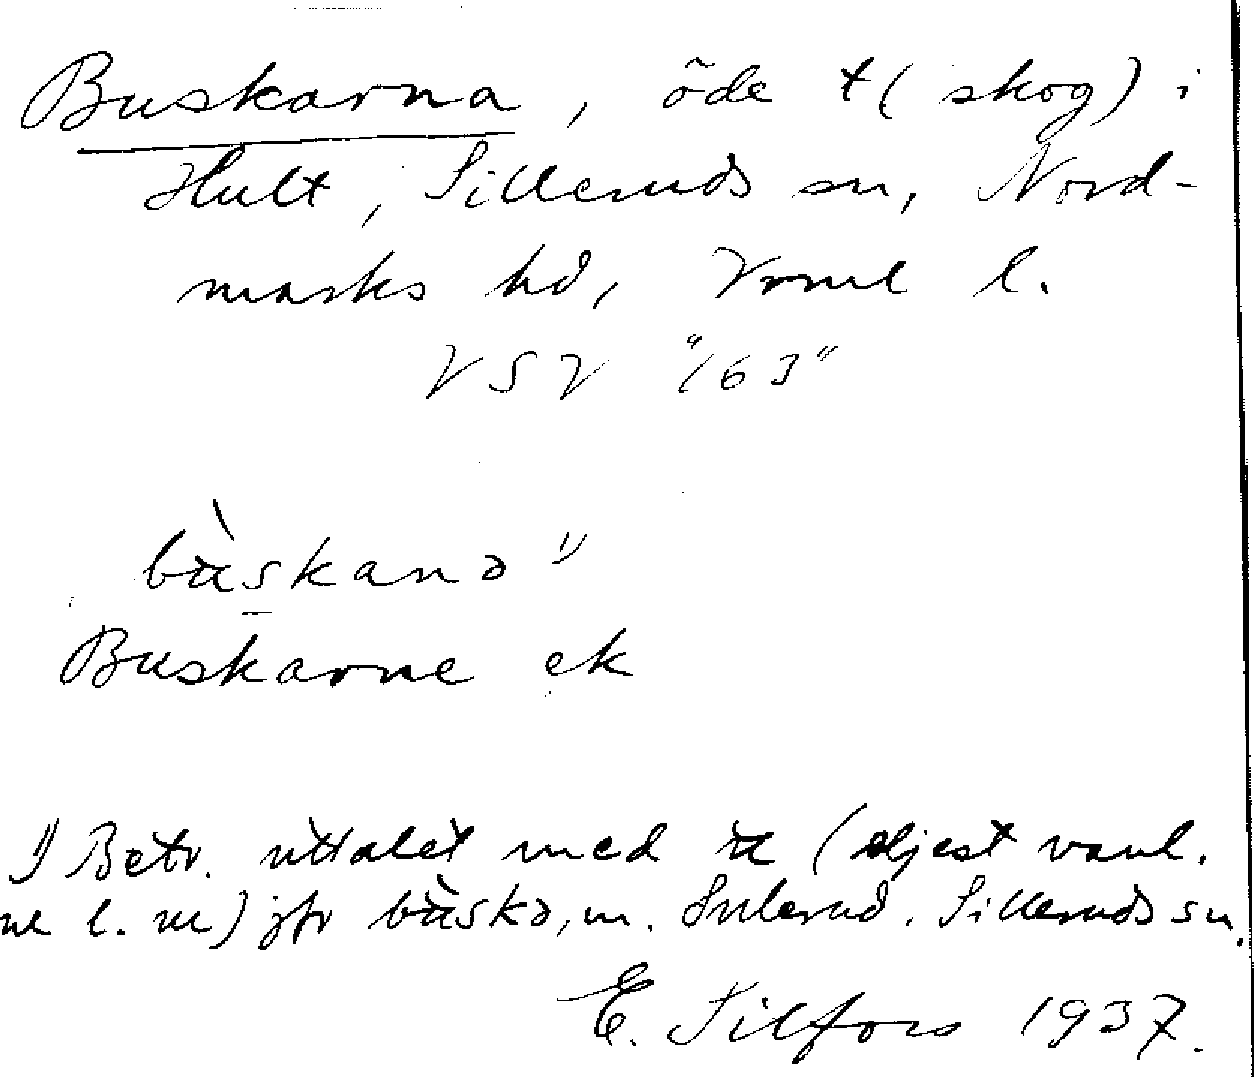 Buskarna, öde t (skog) i
Hult, Silleruds sn, Nord-
marks hd, Vrml l.
VSV "163"
bʉ̀skanə 1)
Buskarne ek
1) Betr. uttalet med ʉ (eljest vanl.
l. ) jfr bʉ̀skə, m. Sulerud, Silleruds sn.
E. Silfors 1937.